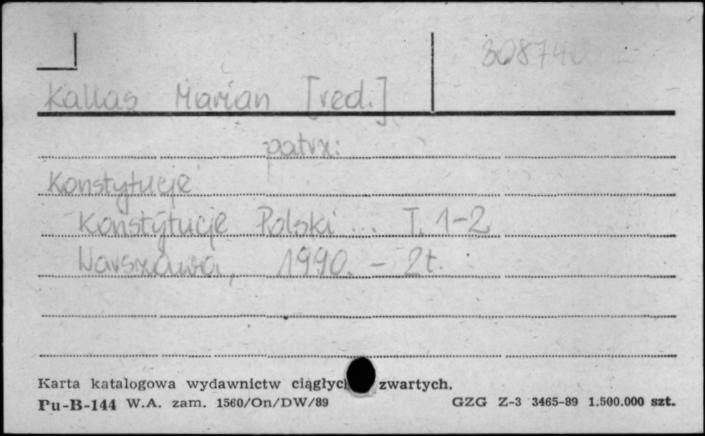 308740
Kallas Marian [red.]
patrz:
Konstytucje
Konstytucje Polski ... T. 1-2
Warszawa, 1990. - 2t.
Karta katalogowa wydawnictw zwartych.
Pu-B-144 W.A. zam. 1560/On/DW/89 GZG Z-3 3465-89 1.500.000 szt.